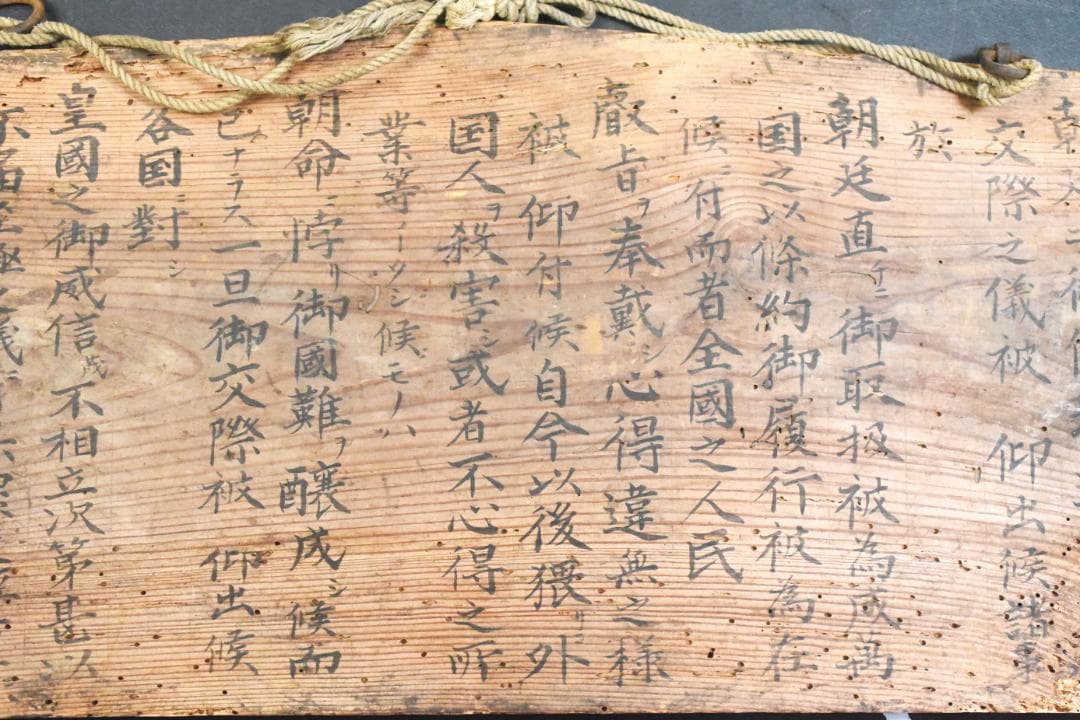 交際之儀被 仰出候諸事
於
朝廷直チニ御取扱被為成萬
国之以條約御履行被為在
候ニ付而者全國之人民
叡旨ヲ奉戴シ心得違無之様
被 仰付候自今以後猥リニ外
国人ヲ殺害シ或者不心得之所
業等イタシ候モノハ
朝命ニ悖リ御國難ヲ釀成シ候而
已ナラス一旦御交際被 仰出候
各国ニ對シ
皇國之御威信茂不相立次第甚以